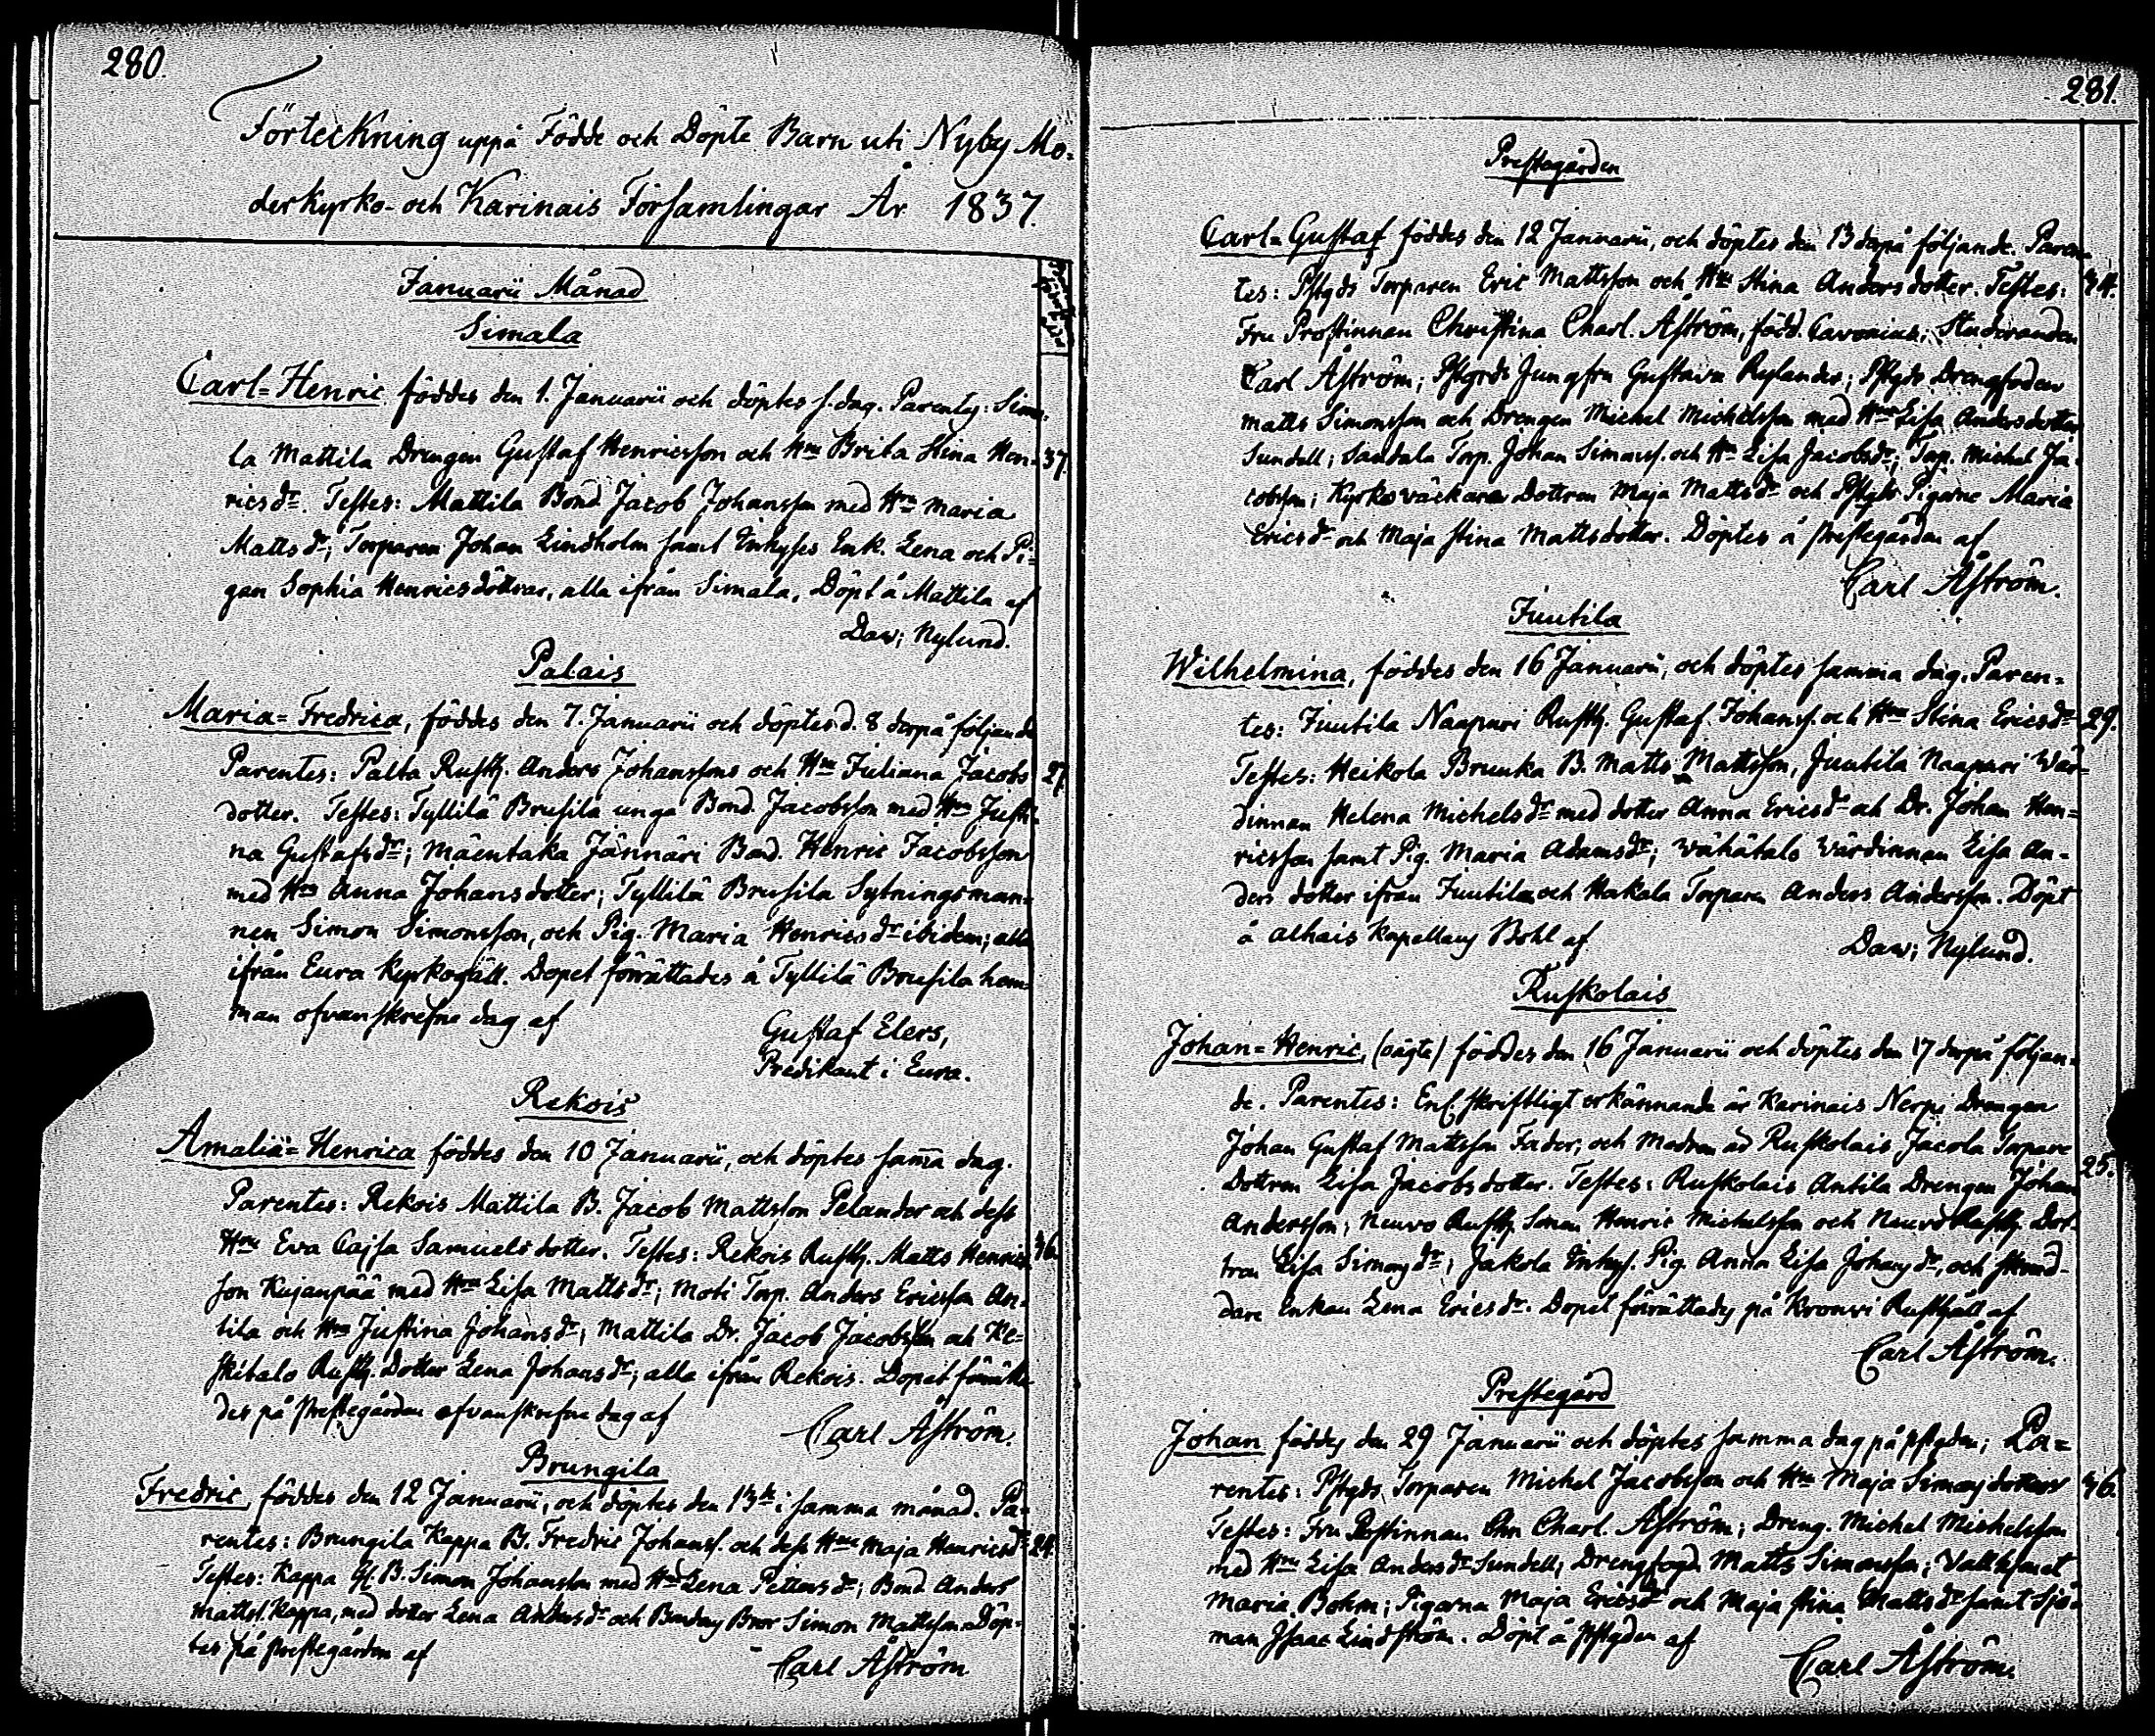 280.
Förteckning uppå Födde och Döpte Barn uti Nyby Mo-
derkyrko- och Karinais Församlingar År 1837.
Januarii Månad
Simala
Carl-Henric föddes den 1. Januarii och döptes s. dag. Parentes: Sima-
la Mattila Drengen Gustaf Henricsson och Hru Brita Stina Hen- 37.
ricsdr. Testes: Mattila Bond. Jacob Johansson med Hru Maria
Mattsdr; Torparen Johan Lindholm samt Enk. Lena och Pi-
gan Sophia Henricsdöttrar, alla ifrån Simala. Döpt å Mattila af
Dav; Nylund.
Palais
Maria-Fredrica, föddes den 7. Januarii och döptes d. 8 derpå följande
Parentes: Palta Rusth. Anders Johanssons och Hru Juliana Jacobs 27
dotter. Testes: Tyllilä Brusila unga Bond. Jacobsson med Hru Justi-
na Gustafsdr; Mäentaka Jännäri Bond. Henric Jacobsson
med Hru Anna Johansdotter; Tyllilä Brusila Sytningsman-
nen Simon Simonsson, och Pig. Maria Henricsdr ibidem; alla
ifrån Eura Kyrkogäll. Dopet förrättades å Tyllilä Brusila hem-
man ofvanskrefne dag af
Gustaf Elers,
Predikant i Eura.
Rekois
Amalia-Henrica föddes den 10 Januarii, och döptes sama dag.
Parentes: Rekois Mattila B. Jacob Mattsson Pelander och dess
Hru Eva Cajsa Samuelsdotter. Testes: Rekois Rusth. Matts Henrics 36.
son Kujanpää med Hru Lisa Mattsdr; Moti Torp. Anders Ericsson An-
tila och Hru Justina Johansdr; Mattila Dr. Jacob Jacobsson och Ke-
skitalo Rusth. Dotter Lena Johansdr; alla ifrån Rekois. Dopet förrätta-
des på Prestegården ofvanskrefne dag af
Carl Åström.
Brungila
Fredric, föddes den 12 Januarii, och döptes den 13de i samma månad. Pa-
rentes: Brungila Kappa B. Fredric Johanss. och dess Hru Maja Henricsdr 24.
Testes: Kappa Gl. B. Simon Johansson med Hru Lena Pettersdr; Bond Anders
Mattss. Kappa, med dotter Lena Andersdr och Bror Simon Mattsson Döp-
tes på Prestegården af
Carl Åström
281.
Prestegården
Carl-Gustaf föddes den 12 Januarii, och döptes den 13 derpå följande. Paren-
tes: Pstgds Torparen Eric Mattsson och Hru Stina Andersdotter. Testes: 34.
Fru Prostinnan Christina Charl. Åström, född. Cavonius; Studeranden
Carl Åström; Pstgrds Jungfru Gustava Rylander; Pstgds Drengfogden
Matts Simonsson och Drengen Michel Michelsson med Hru Lisa Andersdotter
Sundell; Sandala Torp. Johan Simonss. och Hru Lisa Jacobsdr; Torp. Michel Ja-
cobsson; Kyrkoväckare Dottren Maja Mattsdr och Pstgds Pigorne Maria
Ericsdr och Maja Stina Mattsdotter. Döptes å Prestegården af
Carl Åström.
Juutila
Wilhelmina, föddes den 16 Januarii, och döptes samma dag. Paren-
tes: Juutila Naapuri Rusth. Gustaf Johanss. och Hru Stina Ericsdr 29.
Testes: Heikola Brunka B. Matts Mattsson, Juutila Naapuri Vär-
dinnan Helena Michelsdr med dotter Anna Ericsdr och Dr. Johan Hen-
ricsson samt Pig. Maria Adamsdr; Vähätalo Värdinnan Lisa An-
ders dotter ifrån Juutila och Hakala Torparen Anders Andersson. Döpt
å Alhais Kapellans Bohl af
Dav; Nylund.
Ruskolais
Johan-Henric, (oägte) föddes den 16 Januarii och döptes den 17 derpå följan-
de. Parentes: Enl. skriftligt erkännande är Karinais Nerpi Drengen
Johan Gustaf Mattsson Fader, och Modren är Ruskolais Jacola Torpare
Dottren Lisa Jacobsdotter. Testes: Ruskolais Antila Drengen Johan 25.
Andersson; Neuvo Rusth. Sonen Henric Michelsson och Neuvo Rusth. Dot-
tren Lisa Simonsdr; Jakola Inhys. Pig. Anna Lisa Johansdr, och Skräd-
dare Enkan Lena Ericsdr. Dopet förrättades på Kronvi Rusthåll af
Carl Åström.
Prestegård
Johan föddes den 29 Januarii och döptes samma dag på Pstgden; Pa-
rentes: Pstgds Torparen Michel Jacobsson och Hru Maja Simonsdotter 36.
Testes: Fru Prostinnan Chr. Charl. Åström; Dreng. Michel Michelsson
med Hru Lisa Andersdr Sundell; Drengfogd. Matts Simonsson;
Maria Bohm; Pigorna Maja Ericsdr och Maja Stina Mattsdr samt Sjö-
man Isaac Lindström. Döpt å Pstgden af
Carl Åström.